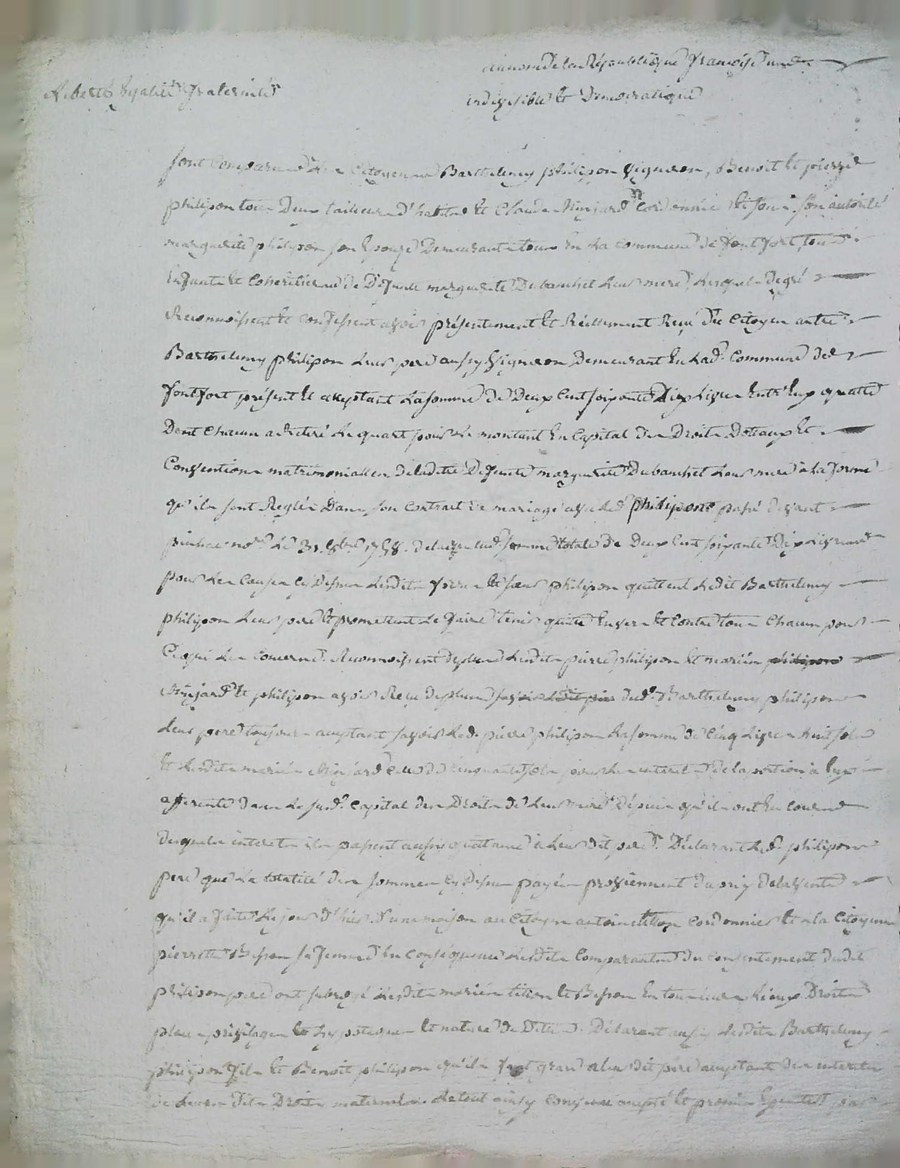 au nom de la République françoise une
Liberté Egalité Fraternité
indivisible et Democratique
sont comparu Les Citoyens Barthelemy philipon vigneron, Benoit et pierre
philipon tous Deux tailleurs d'habits et Claude Minjard Cordonnier et sous son autorité
marguerite philipon son Epouze Demeurants tous En La commune de fontfort tous
Enfants et Coheritiers de Defunte marguerite Dubanchet Leur mere, Lesquels de gré
Reconnoissent et confessent avoir présentement et Réellement Reçu du Citoyen autre
Barthelemy philipon Leur pere aussy vigneron Demeurant En Lad. Commune de
fontfort présent et acceptant La somme de Deux Cent soixante Dix Livres Entr'Eux quatre
Dont Chacun a Retiré Le quart pour Le montant En Capital des Droits Dotaux et
Conventions matrimonialles de ladite Defunte marguerite Dubanchet Leur mere a La forme
qu'ils sont Reglés Dans son Contrat de mariage avec Led. philipons passé devant
no.re Le 31 1758. de laquelle somme totale de Deux Cent soixante Dix Livres
pour Les Causes cy Dessus Lesdits freres et sœur philipon quittent Ledit Barthelemy
philipon Leur pere et promettent Le faire tenir quitte Envers et Contre tous Chacun pour
Ce qui Les Concerne. Reconnoissent de plus Lesdits pierre philipon et mariés philipons
Minjard et philipon avoir Reçu de plus savoir Ledit pie dud. Barthelemy philipon
Leur pere toujours acceptant savoir Led. pierre philipon La somme de Cinq Livres huit sols
Et Lesdits mariés Minjard de cinquante sols pour Les interets de la portion a Eux
afferente dans Le susd. Capital des Droits de Leur mere Depuis qu'ils ont En cours
Desquels interets ils passent aussy quittance a Leur dit pere. Déclarant Led. philipon
pere que La totalité des sommes cy Dessus payées proviennent du prix de la vente
qu'il a faite Le jour d'hier d'une maison au Citoyen antoine titon Cordonnier et a la Citoyenne
pierrette Besson sa femme En conséquence Lesdits Comparants du consentement dudit
philipon pere ont subrogé Lesdits mariés titon et Besson En tous Leurs Lieux Droits
places privilages et hypoteques et nature de Dette. Déclarant aussy Lesdits Barthelemy
philipon fils Et Benoit philipon qu'ils font grace a Leur dit pere acceptant des interets
de Leurs dits Droits maternels de tout aussy